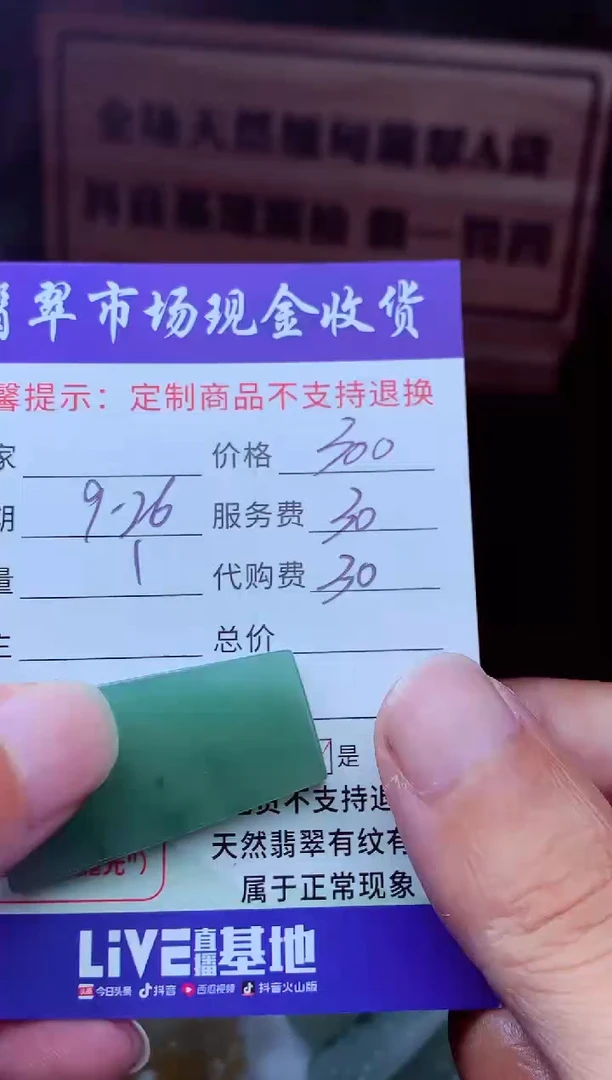 全场天然缅甸翡翠A货
假一罚四
翠市场现金收货
馨提示：定制商品不支持退换
价格 300
9-26 服务费 30
量 1 代购费 30
总价
是
不支持退
天然翡翠有纹有
属于正常现象
LiVE直播基地
头条 今日头条 抖音 西瓜视频 抖音火山版